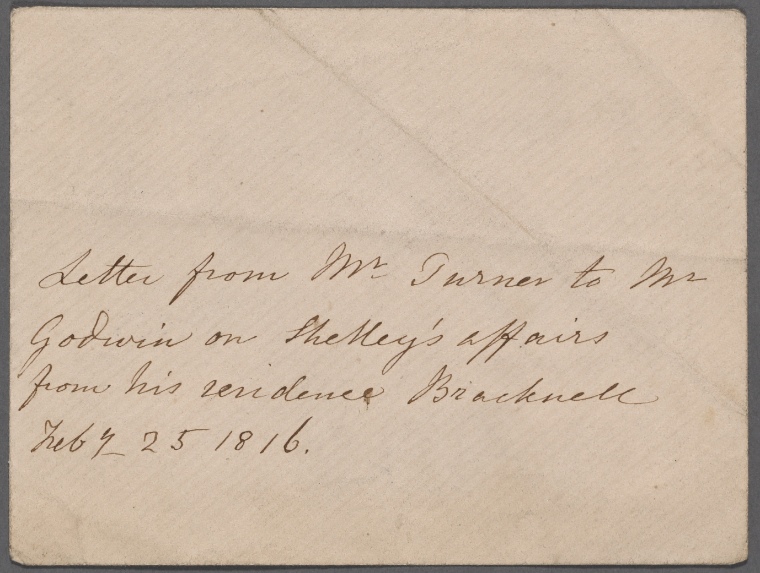 Letter from Mr Turner to Mr
Godwin on Shelley's affairs
from his residence Bracknell
Feby 25 1816.